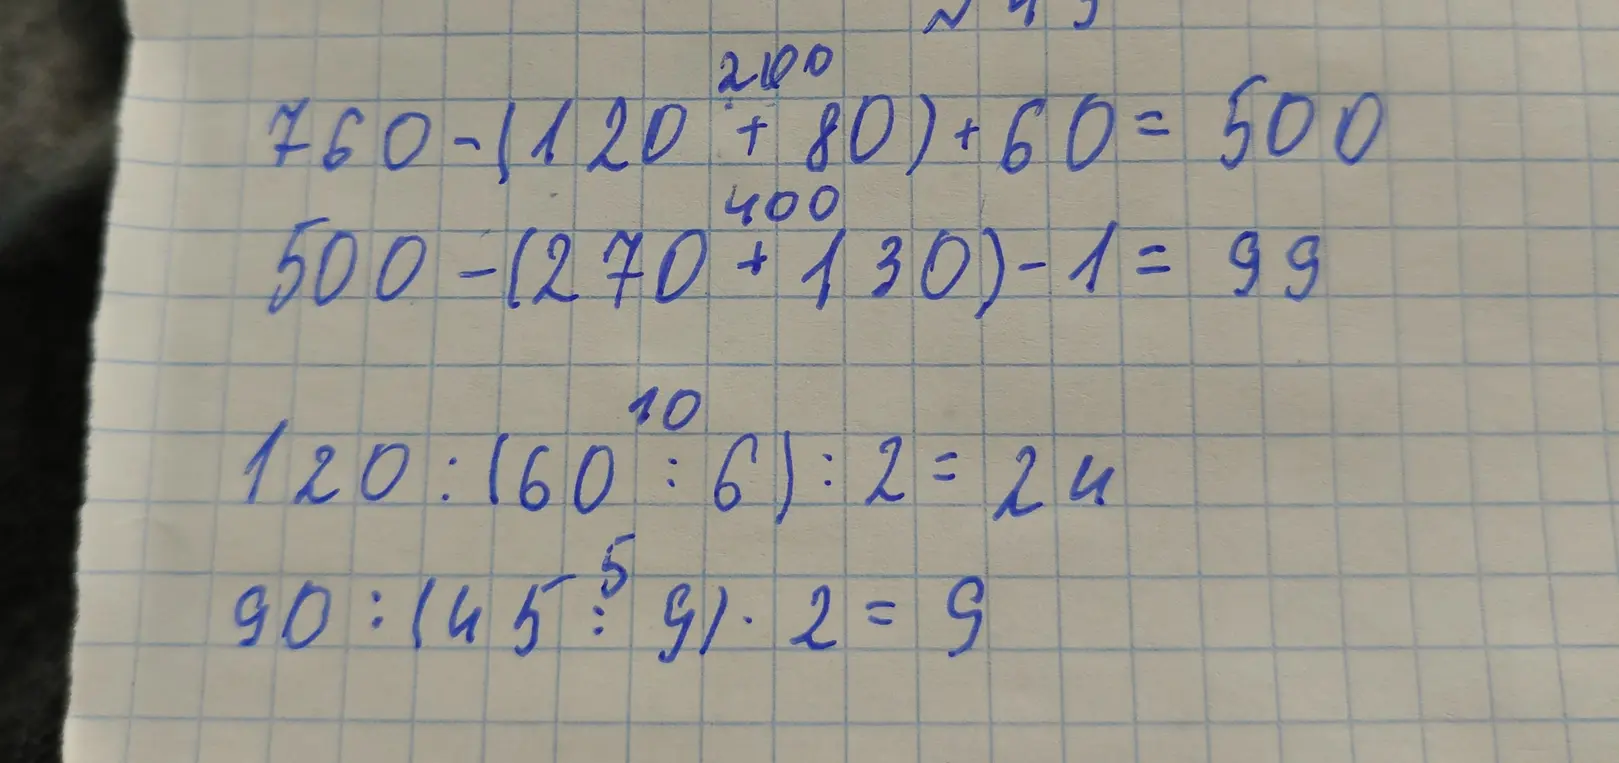 200
760 - (120 + 80) + 60 = 500
400
500 - (270 + 130) - 1 = 99
10
120 : (60 : 6) : 2 = 24
5
90 : (45 : 9) · 2 = 9